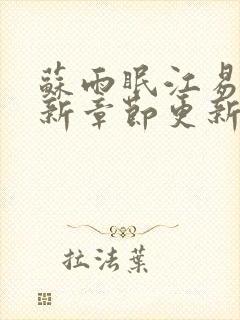 蘇雨眠江易
新章節更新
拉法葉